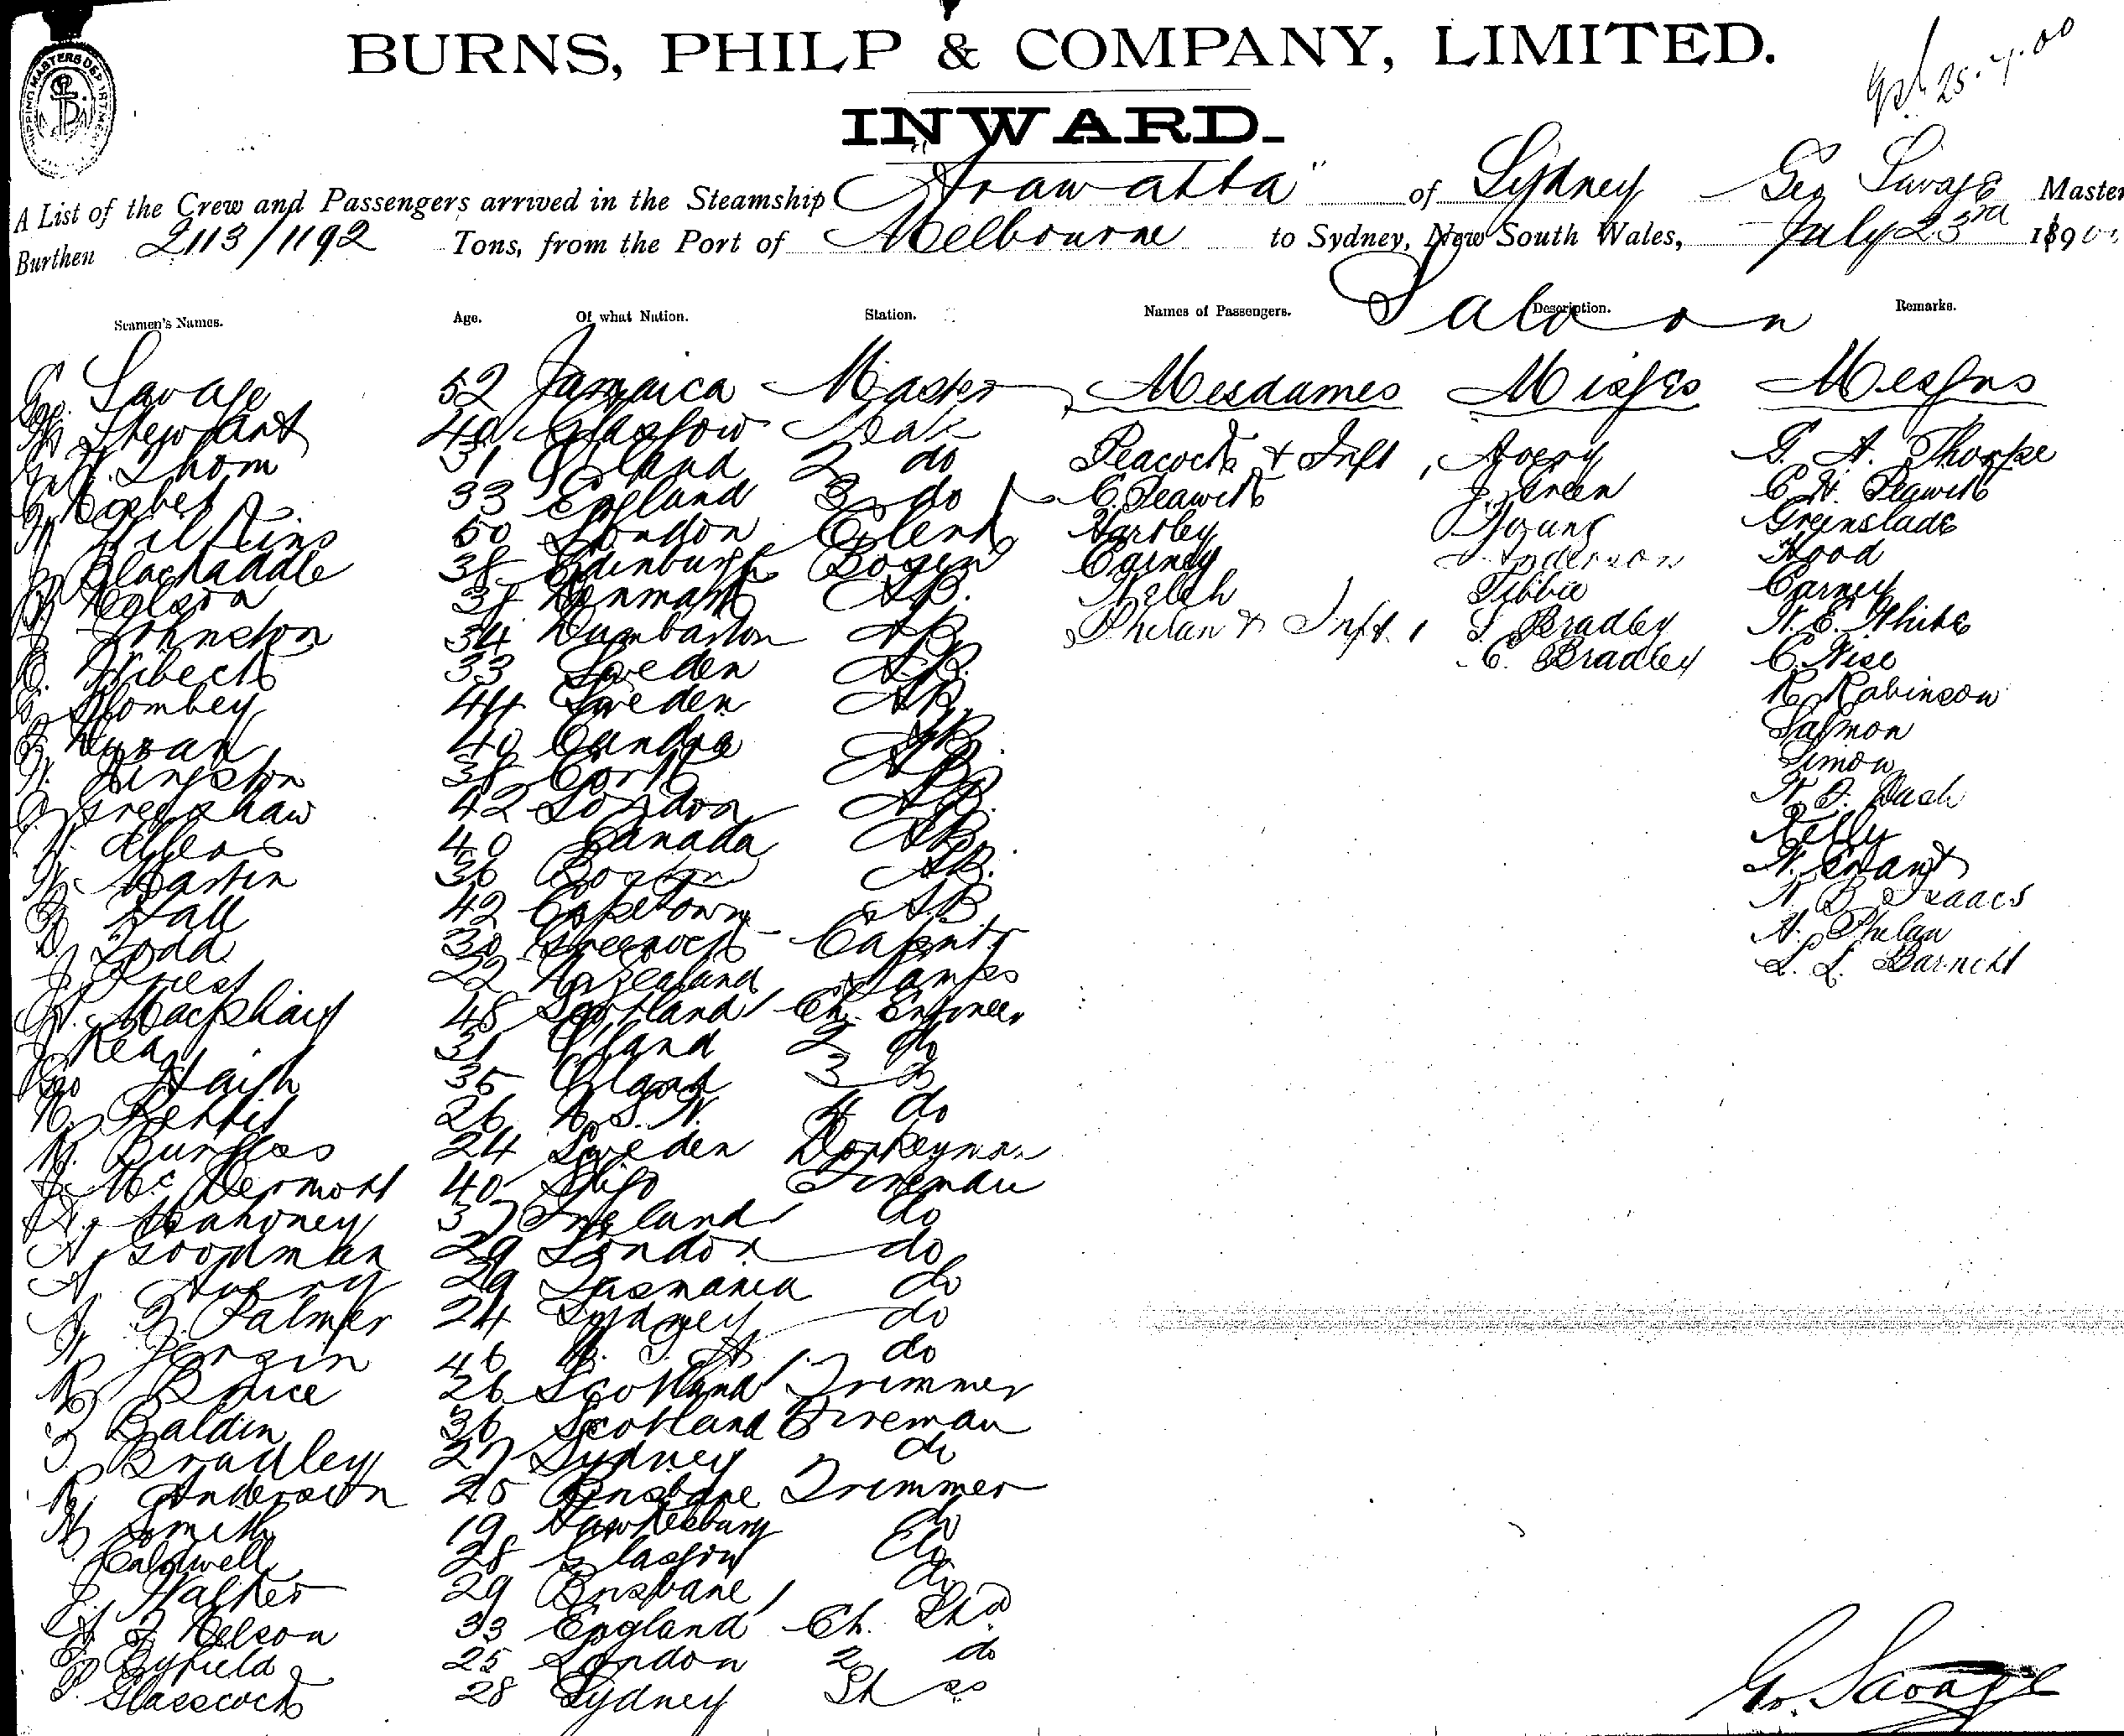 BURNS, PHILP & COMPANY, LIMITED.
25.7.00
INWARD.
SHIPPING MASTERS DEPARTMENT
A List of the Crew and Passengers arrived in the Steamship "Arawatta" of Sydney Geo Savage Master
Burthen 2113/1192 Tons, from the Port of Melbourne to Sydney, New South Wales, July 23rd 1890
Saloon
Seamen's Names. Age. Of what Nation. Station. Names of Passengers. Description. Remarks.
G. Savage 52 Jamaica Master Mesdames Misses Messrs
Stewart 40 Glasgow Mate
Thom 31 2 do Peacock & Inft 1 Avery G. A. Thorpe
33 England 3 do C. Seawith Green C. H. Seawith
Wilkins 50 London Clerk Hartley Young Greenslade
Blackaddle 38 Edinburgh Bosun Carney Anderson Hood
Nelson 38 Denmark AB. Welch Tibbie Carney
Johnston 34 Dumbarton AB Phelan & Inft. 1 S. Bradley W. E. White
Wibeck 33 Sweden AB. C. Bradley C. Wise
Blombey 44 Sweden AB. R Robinson
40 AB. Salmon
Kingston 38 Cork AB Simon
Greeshaw 42 London AB. W. J. Dash
40 Canada AB. Kelly
W. Martin 36 Boston AB. W. Grant
Hall 42 Capetown AB B. Isaacs
Todd 30 Greenock Carpntr A. Phelan
J Priest 22 N Zealand Lamps L. L. Barnett
Macphail 48 Scotland Ch. Engineer
J Rea 31 2 do
Geo Haigh 35 3 do
26 N. S. W. 4 do
Burgess 24 Sweden Donkeyman
J McDermott 40 Sligo Fireman
Mahoney 37 Ireland do
A. Goodman 29 London do
A Avery 29 Tasmania do
Palmer 24 Sydney do
46 do
R Bruce 26 Scotland Trimmer
J Baldin 36 Scotland Fireman
J. Bradley 27 Sydney do
R. Anderson 25 Brisbane Trimmer
Smith 19 Hawkesbury do
Caldwell 28 Glasgow do
J. Walker 29 Brisbane do
Nelson 33 England Ch. Std
Byfield 25 London 2 do
Glasscock 28 Sydney St do
G. Savage